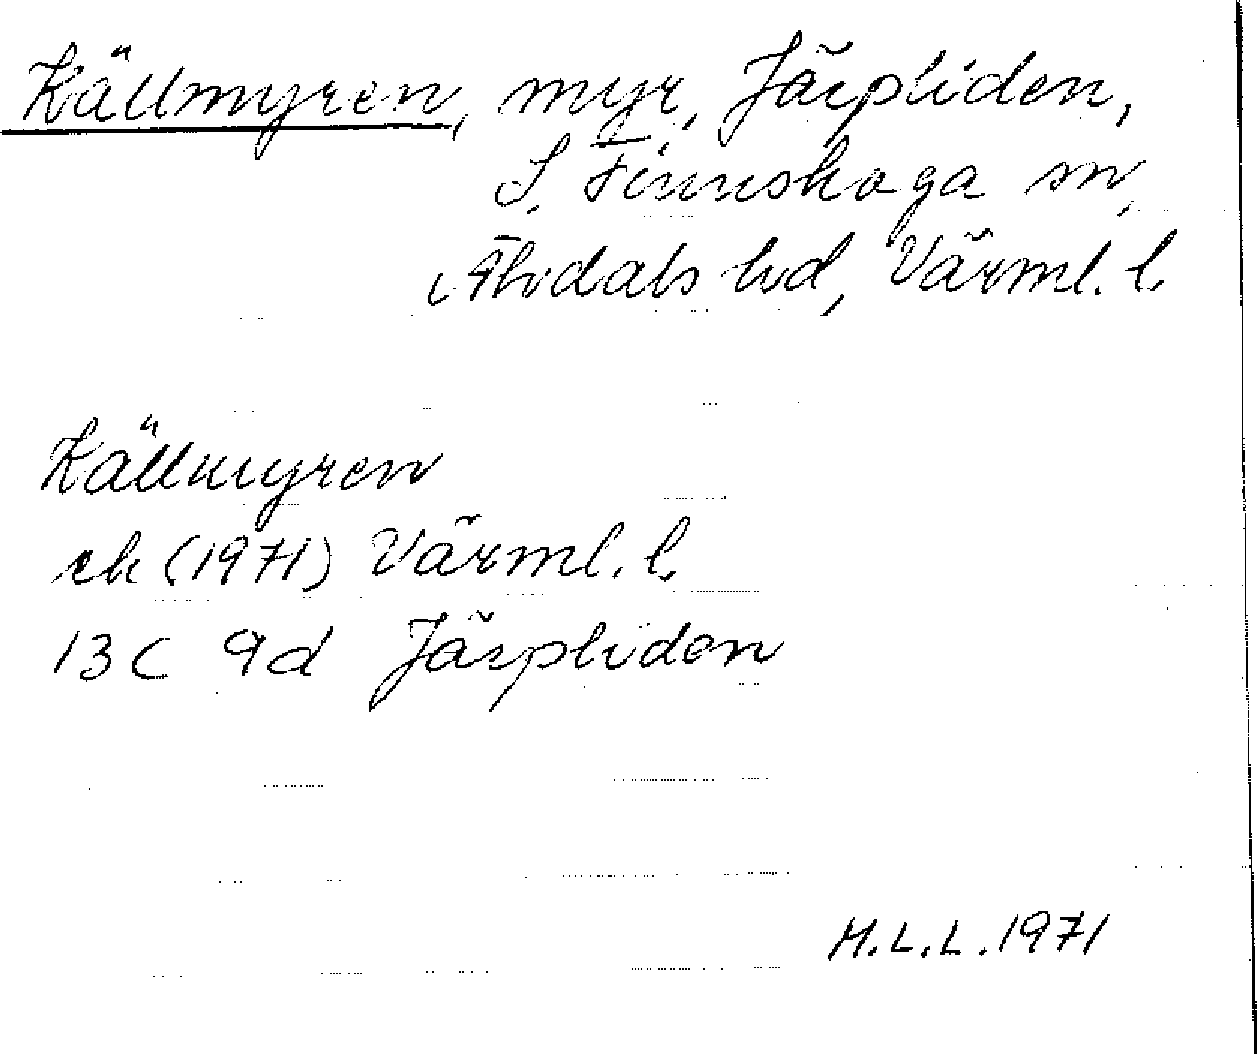 Källmyren, myr, Järpliden,
S. Finnskoga sn,
Älvdals hd, Värml. l.
Källmyren
ek (1971) Värml. l.
13C 9d Järpliden
H.L.L. 1971